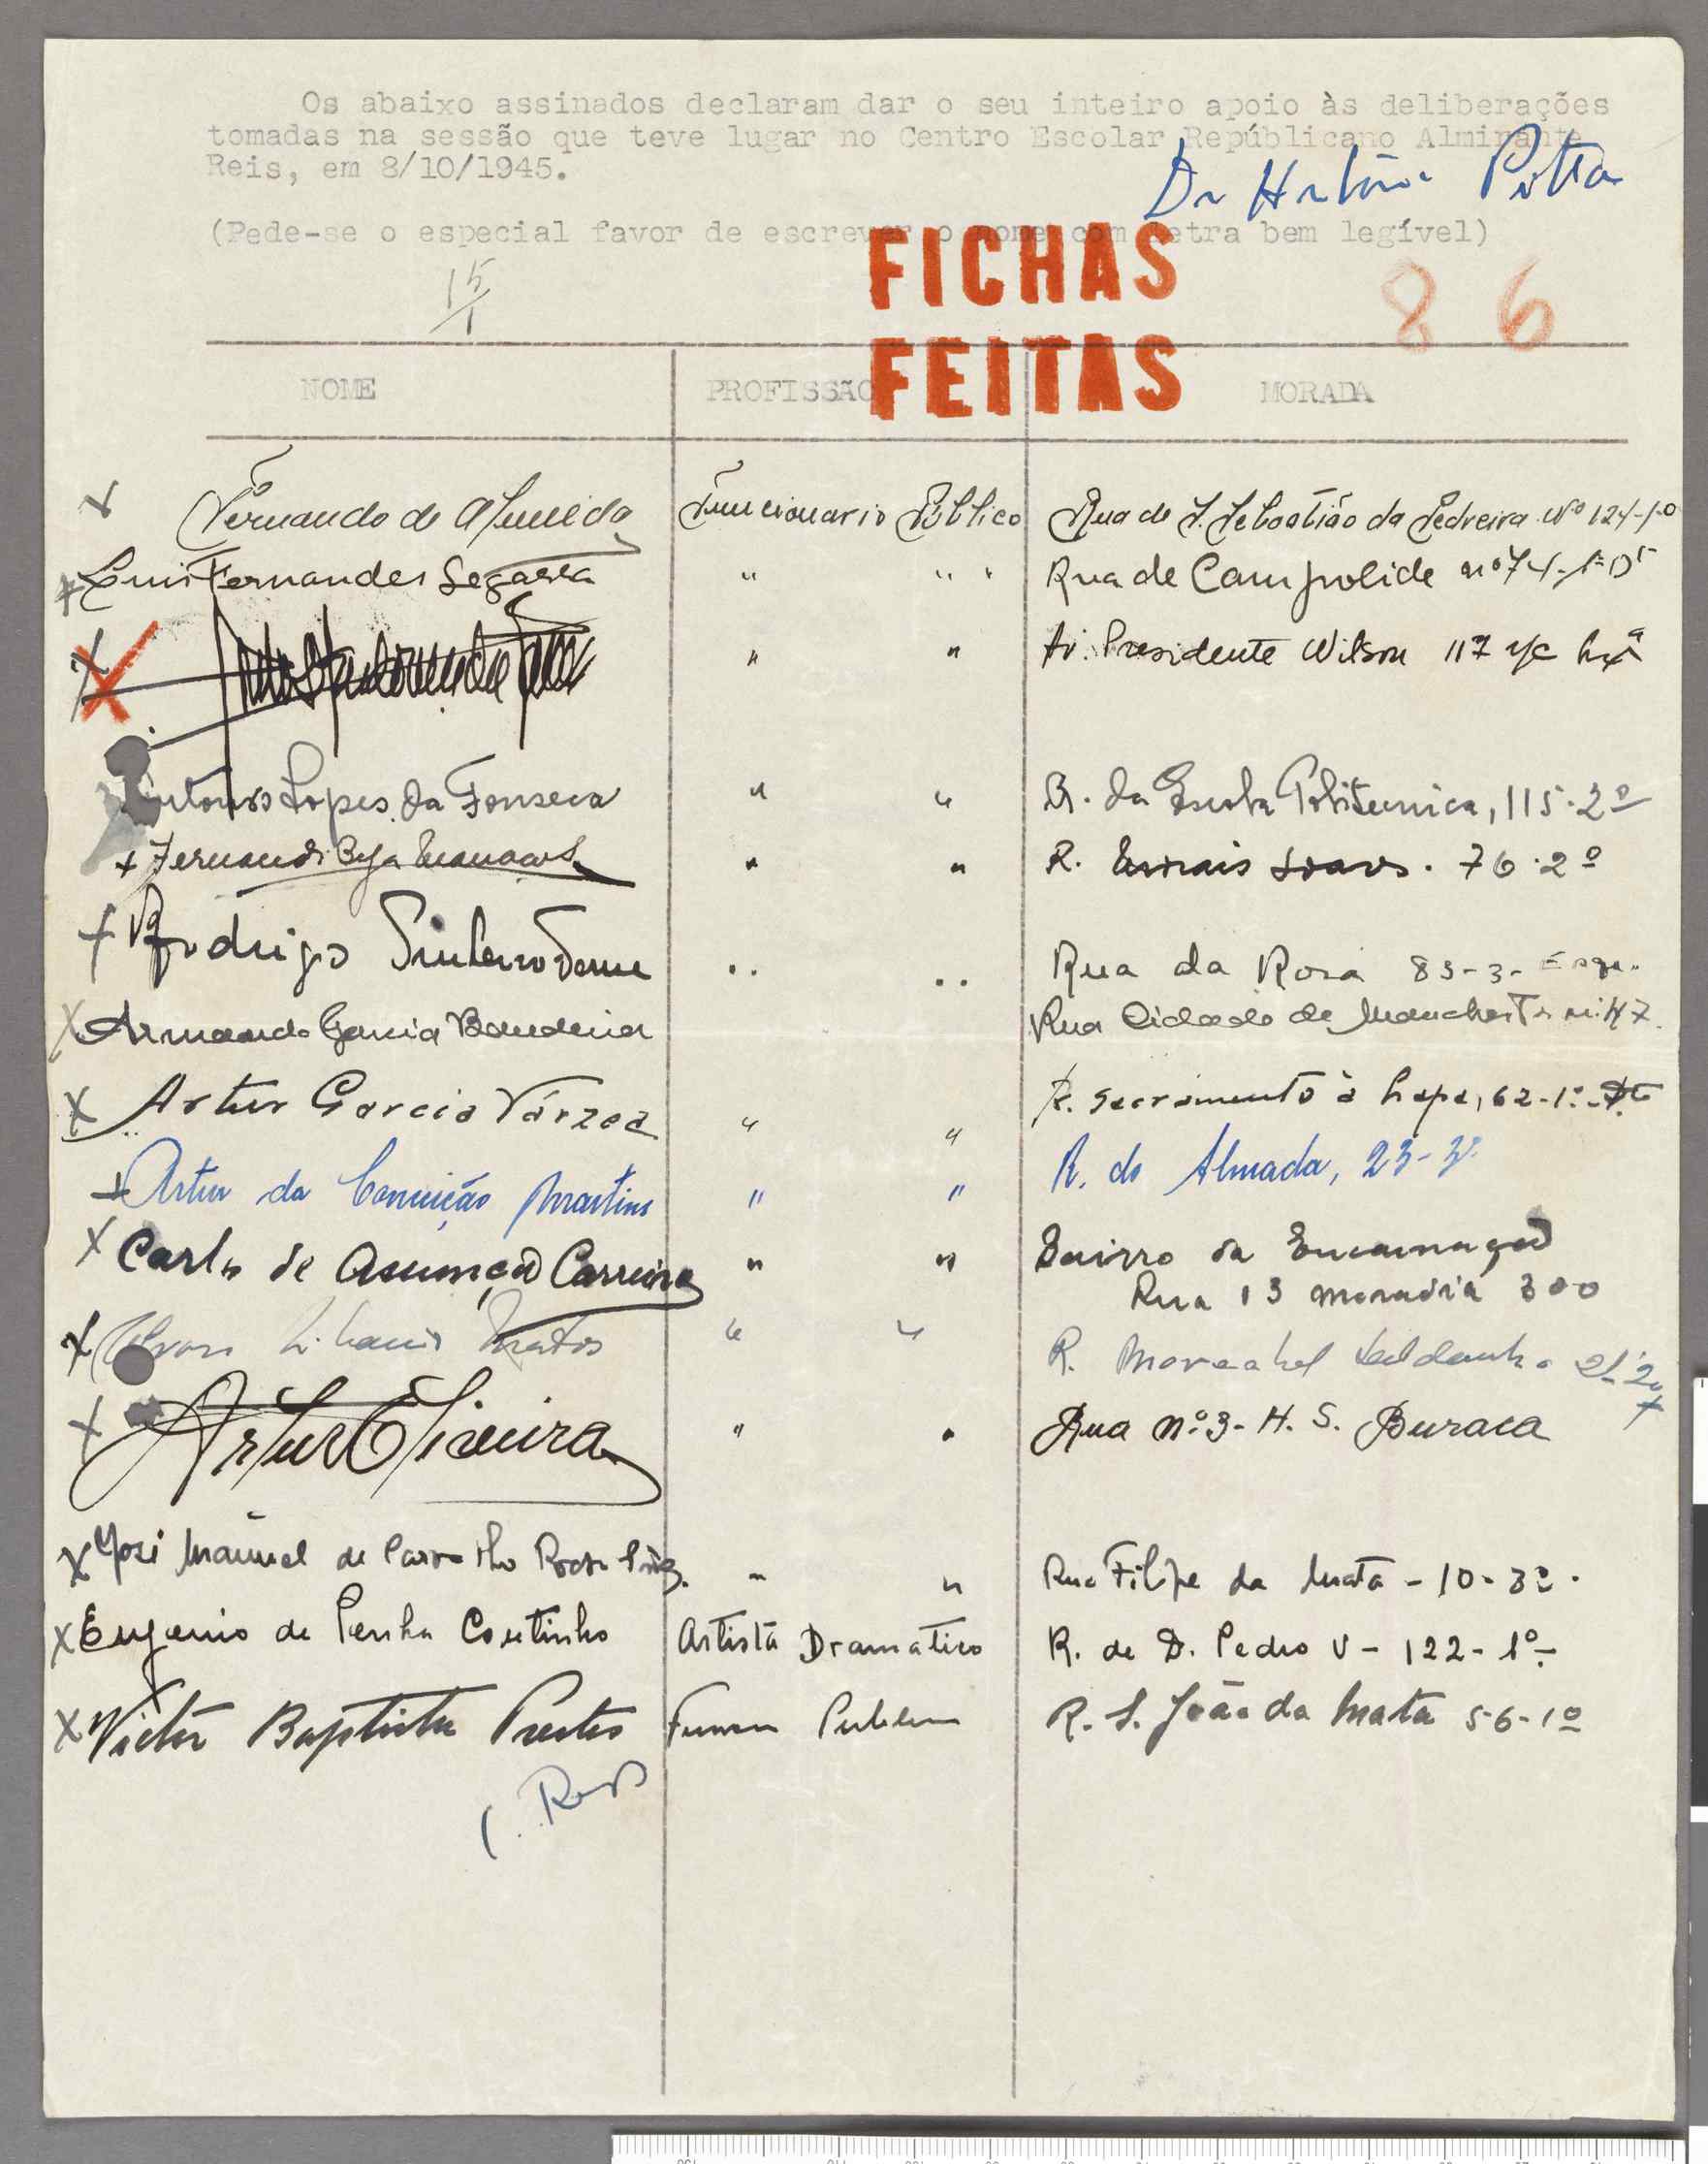 Os abaixo assinados declaram dar o seu inteiro apoio às deliberações
tomadas na sessão que teve lugar no Centro Escolar Repúblicano Almirante
Reis, em 8/10/1945.
Dr
(Pede-se o especial favor de escrever o nome com letra bem legível)
FICHAS
FEITAS
15/1
86
NOME PROFISSÃO MORADA
Fernando de Almeida Funcionario Público Rua de S. Sebastião da Pedreira Nº 124-1º
Luis Fernandes Segarra " " Rua de Campolide nº 74-1º Dº
" " Av. Presidente Wilson 117 r/c Lxª
Antonio Lopes da Fonseca " " R. da Escola Politecnica, 115-2º
Fernando " " R. Morais Soares. 76-2º
Rodrigo " " Rua da Rosa 85-3-Esq.
Armando Garcia Bandeira Rua Cidade de Manchester
Artur Garcia Várzea " " R. Sacramento à Lapa, 62-1º-Dto
Artur da Conceição Martins " " R. do Almada, 23-3º
Carlos de Assunção Carreira " " Bairro da Encarnação
Rua 13 moradia 300
Matos " " R. Marechal Saldanha
Artur Oliveira " " Rua nº 3-H. S. Buraca
José Manuel de Carvalho " " Rua Filipe da Mata - 10-3º.
Eugenio de Penha Coutinho Artista Dramatico R. de D. Pedro V - 122-1º
Victor Baptista Prestes R. S. João da Mata 56-1º